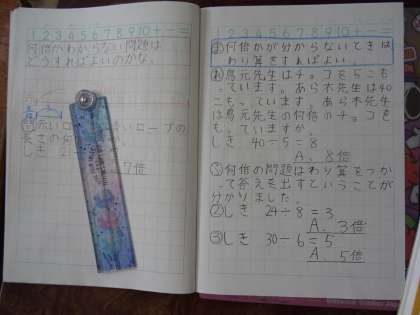 1 2 3 4 5 6 7 8 9 10 + − =
何倍かわからない問題は
どうすればよいのかな。
しき 21
7倍
1 2 3 4 5 6 7 8 9 10 + − =
何倍かが分からないときは
わり算をすればよい。
先生はチョコを5こも
っています。あら木先生は40
こもっています。あら木先生
は鳥元先生の何倍のチョコを
もっていますか。
しき 40÷5=8
A. 8倍
何倍の問題はわり算をつか
って答えを出すということが
分かりました。
②しき 24÷8=3
A. 3倍
③しき 30÷6=5
A. 5倍